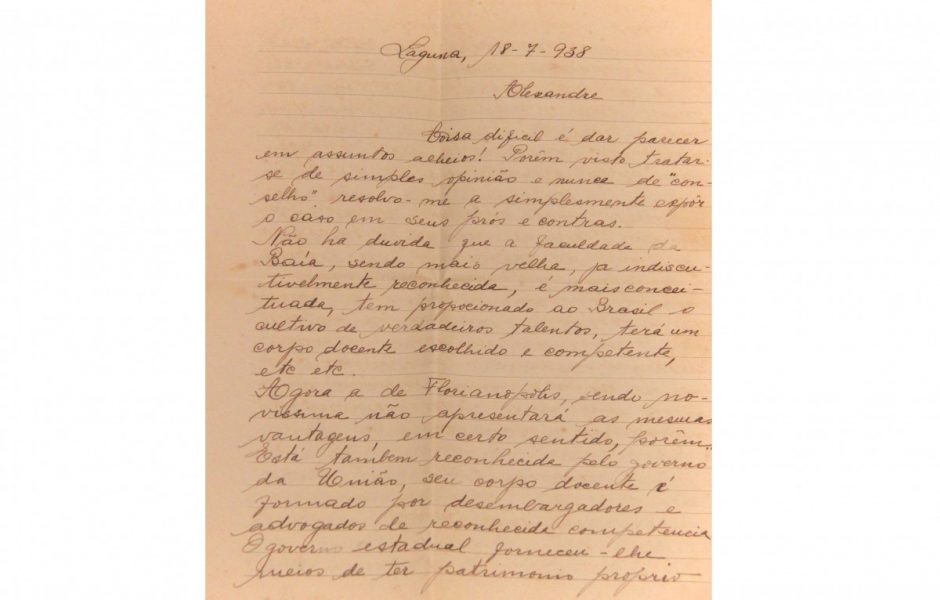 Laguna, 18-7-938
Alexandre
Coisa dificil é dar parecer
em assuntos alheios! Porêm visto tratar-
se de simples opinião e nunca de "con-
selho" resolvo-me a simplesmente expôr
o caso em seus prós e contras.
Não ha duvida que a faculdade da
Baía, sendo mais velha, ja indiscu-
tivelmente reconhecida, é mais concei-
tuada, tem propocionado ao Brasil o
cultivo de verdadeiros talentos, terá um
corpo docente escolhido e competente,
etc etc.
Agora a de Florianopolis, sendo no-
vissima não apresentará as mesmas
vantagens, em certo sentido, porêm
Está tambem reconhecida pelo governo
da União, seu corpo docente é
formado por desembargadores e
advogados de reconhecida competencia
O governo estadual forneceu-lhe
meios de ter patrimonio proprio